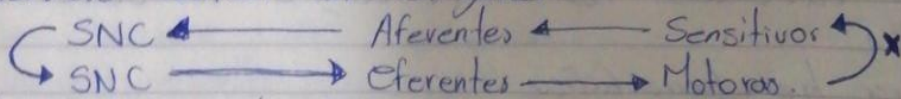 SNC Aferentes Sensitivos x
SNC Eferentes Motoras.